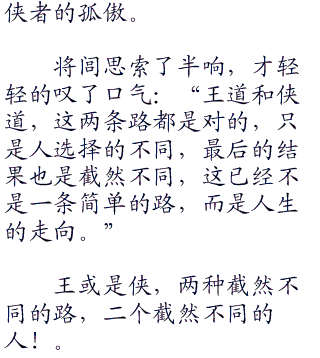 侠者的孤傲。
将闾思索了半响，才轻
轻的叹了口气：“王道和侠
道，这两条路都是对的，只
是人选择的不同，最后的结
果也是截然不同，这已经不
是一条简单的路，而是人生
的走向。”
王或是侠，两种截然不
同的路，二个截然不同的
人！。